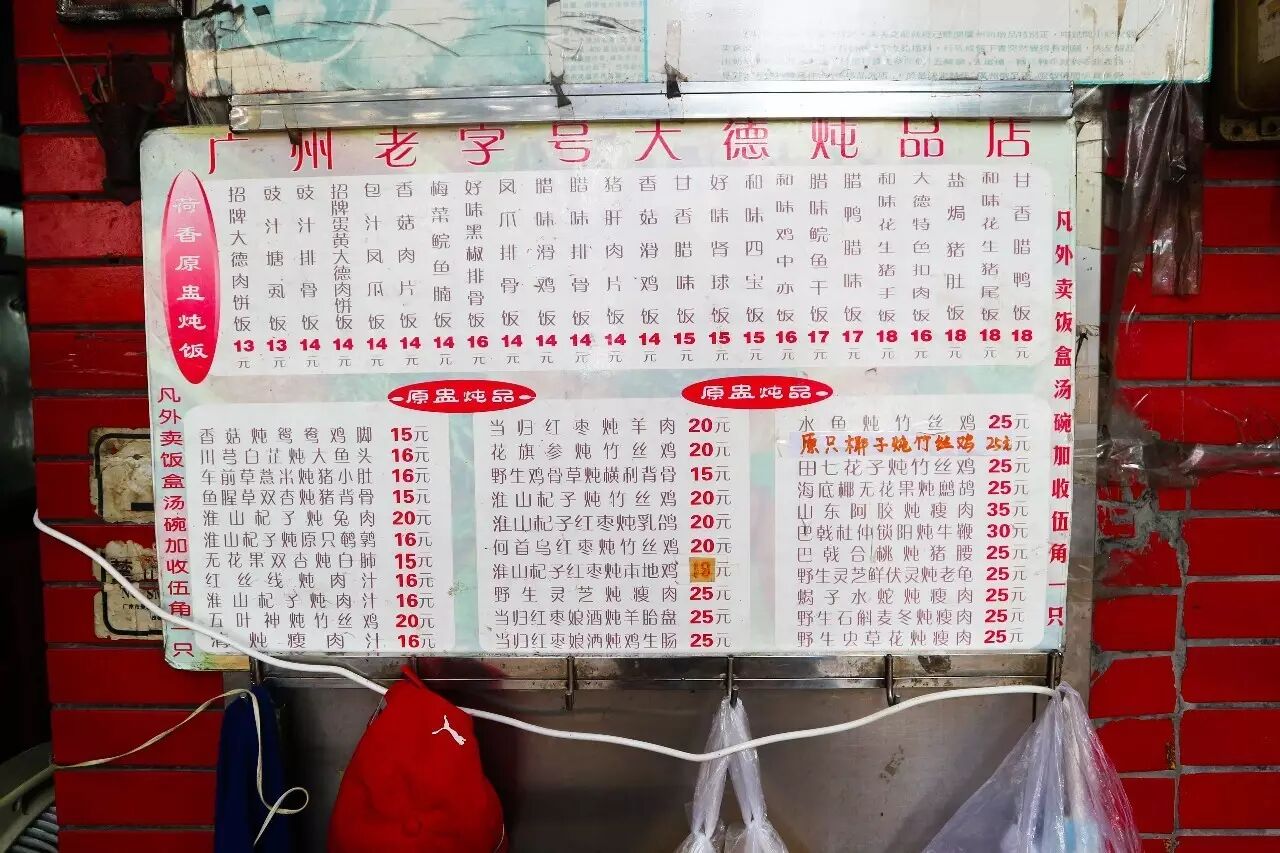 广州老字号大德炖品店
荷香原盅炖饭
招牌大德肉饼饭 13元
豉汁塘虱饭 13元
豉汁排骨饭 14元
招牌蛋黄大德肉饼饭 14元
包汁凤爪饭 14元
香菇肉片饭 14元
梅菜鲩鱼腩饭 14元
好味黑椒排骨饭 16元
凤爪排骨饭 14元
腊味滑鸡饭 14元
腊味排骨饭 14元
猪肝肉片饭 14元
香菇滑鸡饭 14元
甘香腊味饭 15元
好味肾球饭 15元
和味四宝饭 15元
和味鸡中亦饭 16元
腊味鲩鱼干饭 17元
腊鸭腊味饭 17元
和味花生猪手饭 18元
大德特色扣肉饭 16元
盐焗猪肚饭 18元
和味花生猪尾饭 18元
甘香腊鸭饭 18元
凡外卖饭盒汤碗加收伍角一只
凡外卖饭盒汤碗加收伍角一只
原盅炖品
原盅炖品
香菇炖鸳鸯鸡脚 15元
川芎白芷炖大鱼头 16元
车前草薏米炖猪小肚 16元
鱼腥草双杏炖猪背骨 15元
淮山杞子炖兔肉 20元
淮山杞子炖原只鹌鹑 16元
无花果双杏炖白肺 15元
红丝线炖肉汁 16元
淮山杞子炖肉汁 16元
五叶神炖竹丝鸡 20元
炖瘦肉汁 16元
当归红枣炖羊肉 20元
花旗参炖竹丝鸡 20元
野生鸡骨草炖横利背骨 15元
淮山杞子炖竹丝鸡 20元
淮山杞子红枣炖乳鸽 20元
何首乌红枣炖竹丝鸡 20元
淮山杞子红枣炖本地鸡 18元
野生灵芝炖瘦肉 25元
当归红枣娘酒炖羊胎盘 25元
当归红枣娘酒炖鸡生肠 25元
水鱼炖竹丝鸡 25元
原只椰子炖竹丝鸡 25元
田七花子炖竹丝鸡 25元
海底椰无花果炖鹧鸪 25元
山东阿胶炖瘦肉 35元
巴戟杜仲锁阳炖牛鞭 30元
巴戟合桃炖猪腰 25元
野生灵芝鲜伏灵炖老龟 25元
蝎子水蛇炖瘦肉 25元
野生石斛麦冬炖瘦肉 25元
野生虫草花炖瘦肉 25元